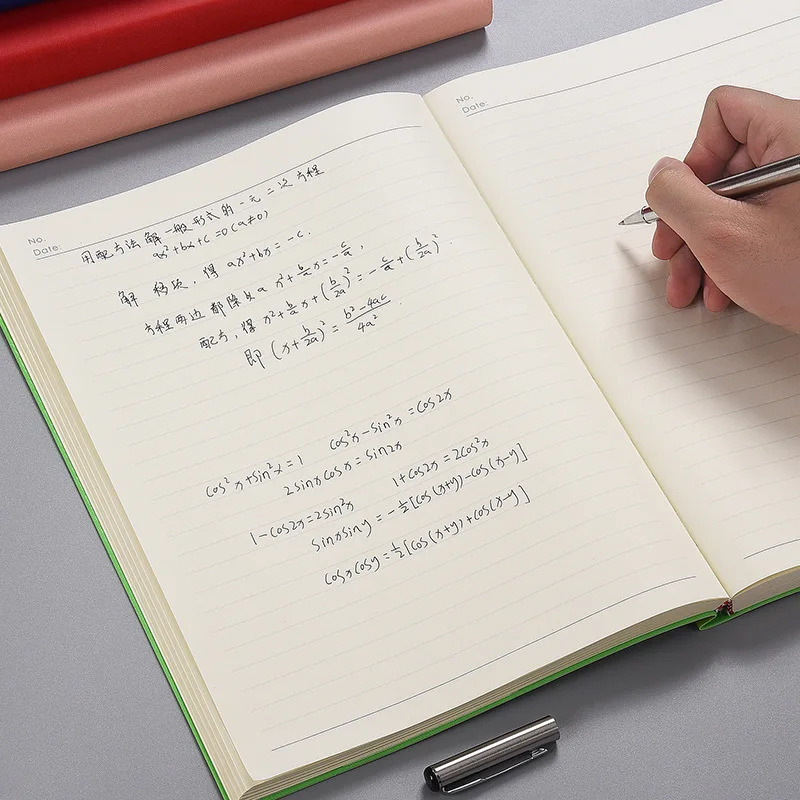 No.
Date:
用配方法解一般形式的一元二次方程
ax²+bx+c=0(a≠0)
解 移项，得 ax²+bx=-c.
方程两边都除以a x²+b/a x=-c/a,
配方，得 x²+b/a x+(b/2a)²=-c/a+(b/2a)².
即 (x+b/2a)²=b²-4ac/4a².
cos²x+sin²x=1 cos²x-sin²x=cos2x
2sinxcosx=sin2x
1-cos2x=2sin²x 1+cos2x=2cos²x
sinxsiny=-1/2[cos(x+y)-cos(x-y)]
cosxcosy=1/2[cos(x+y)+cos(x-y)]
No.
Date: